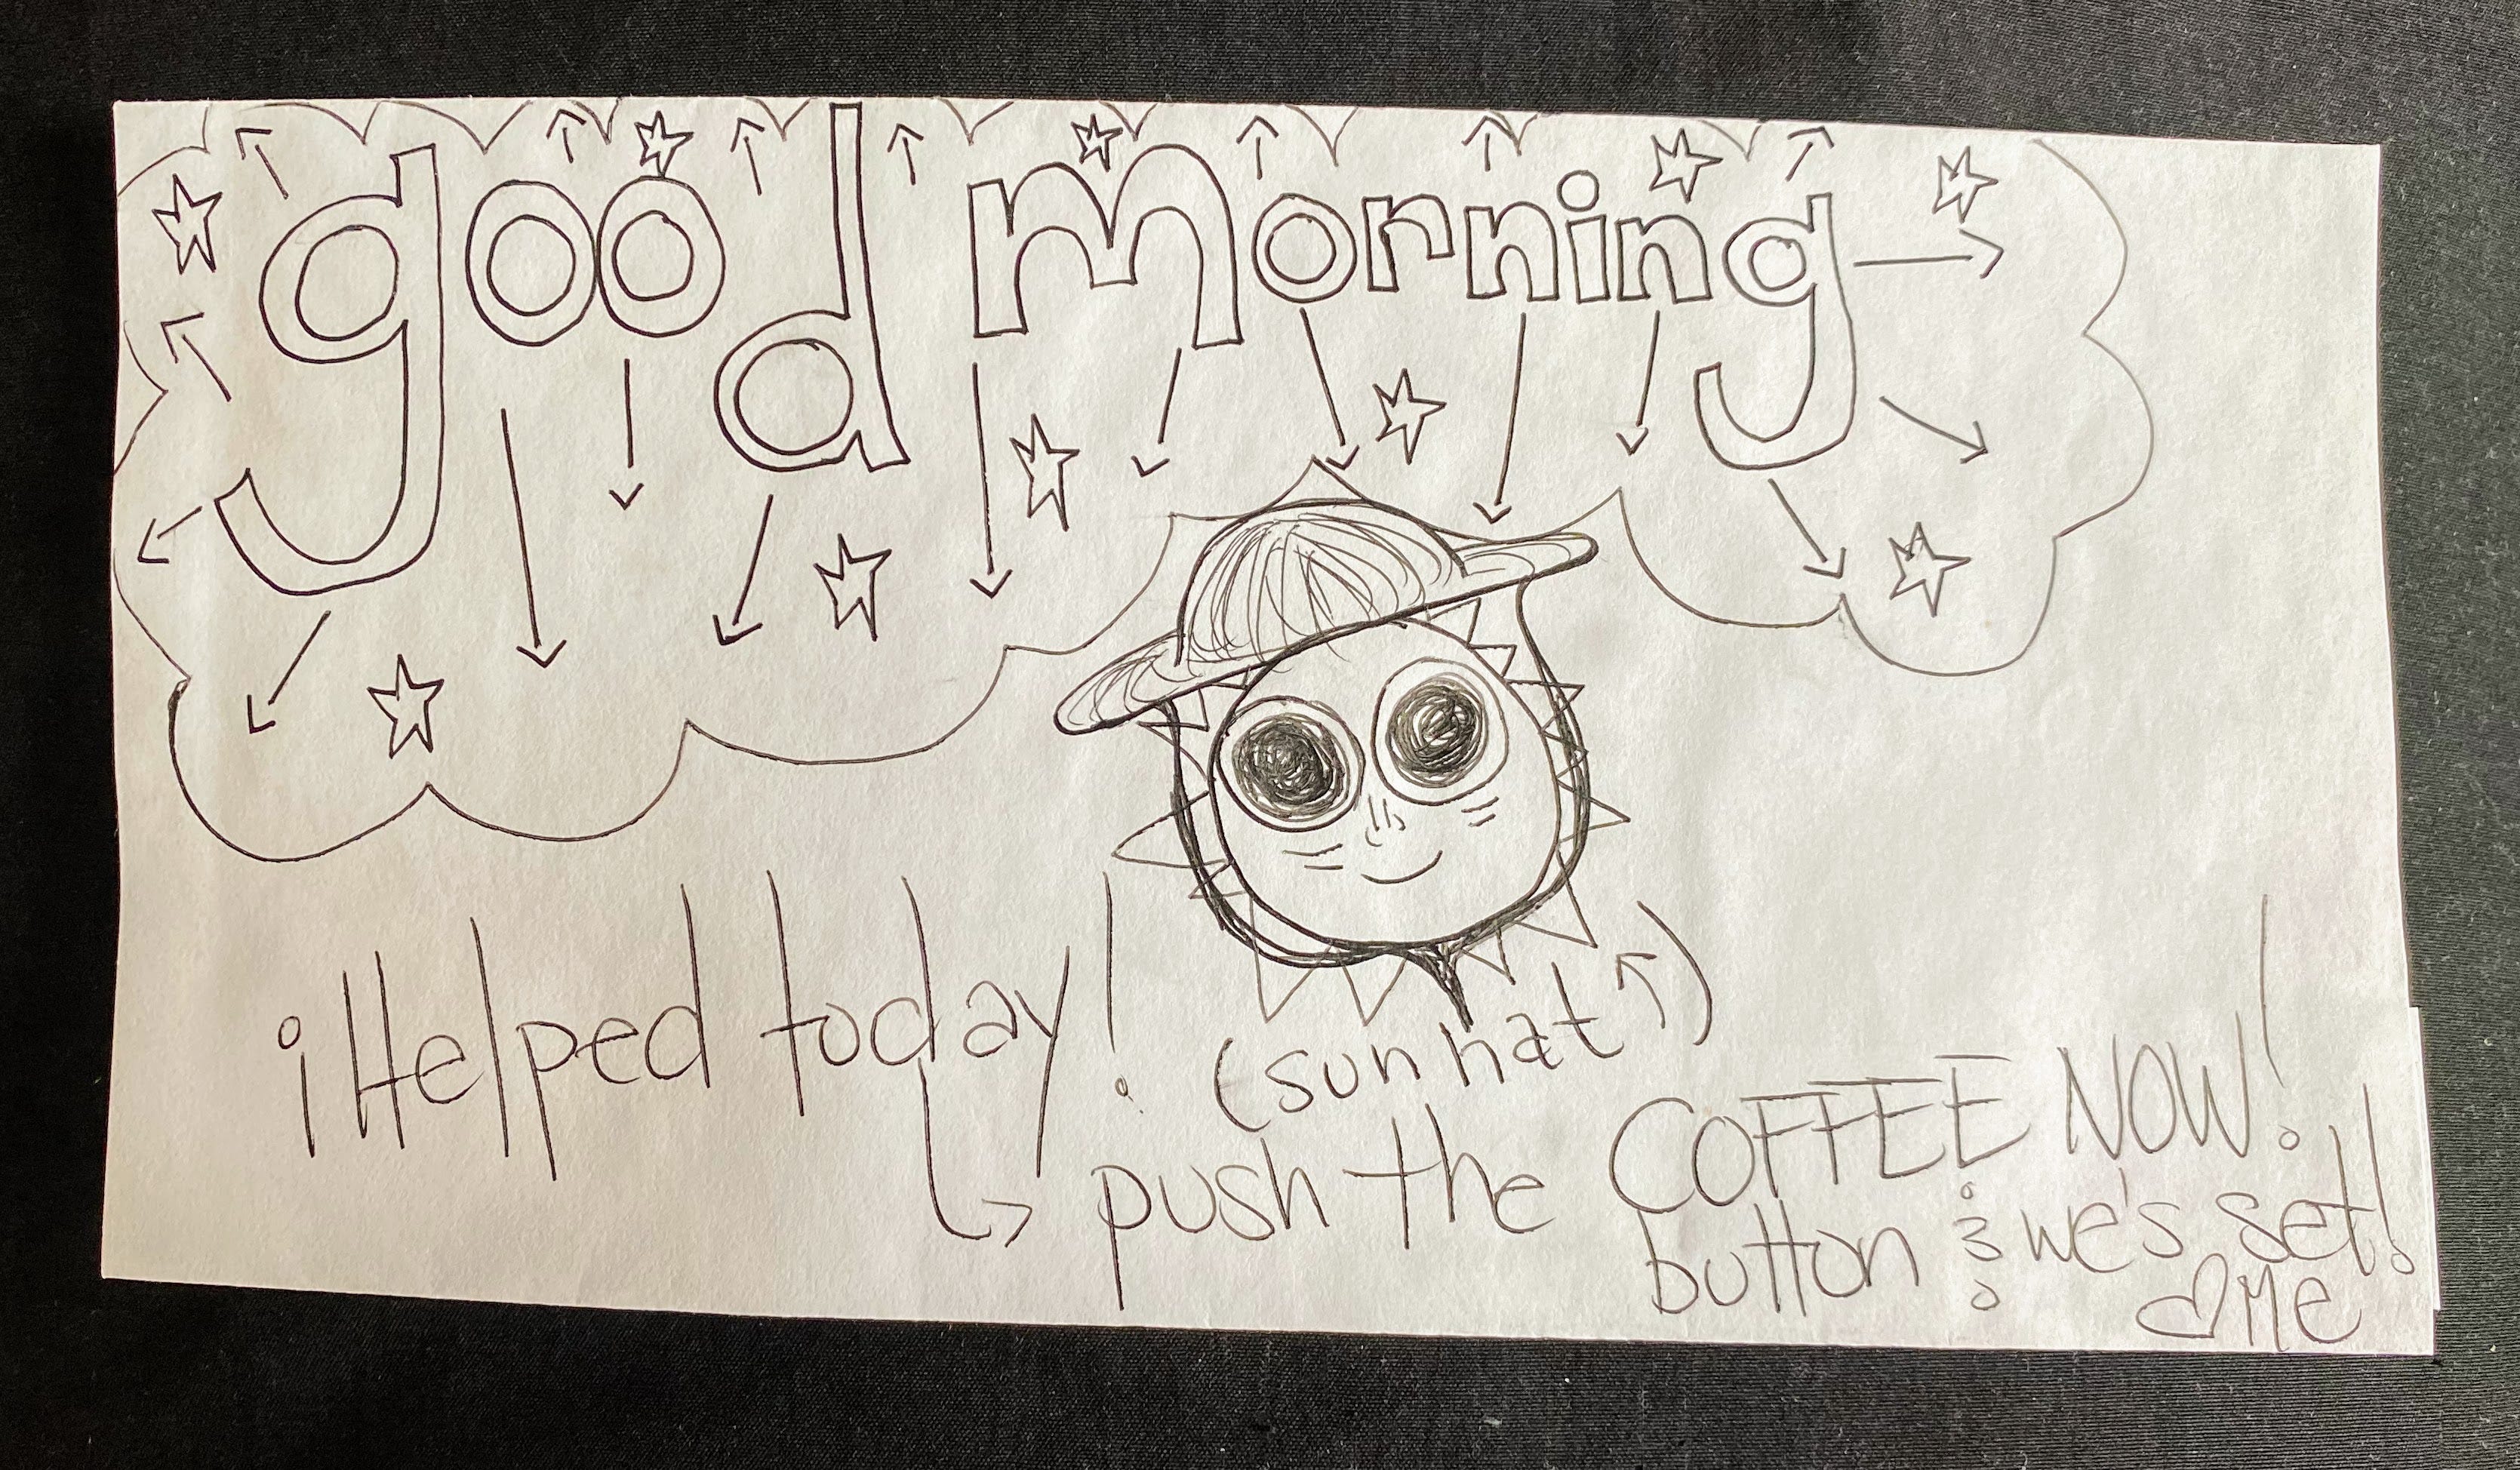 good morning
i Helped today!
(sun hat ↑)
push the COFFEE NOW!
button & we's set!
♡ Me